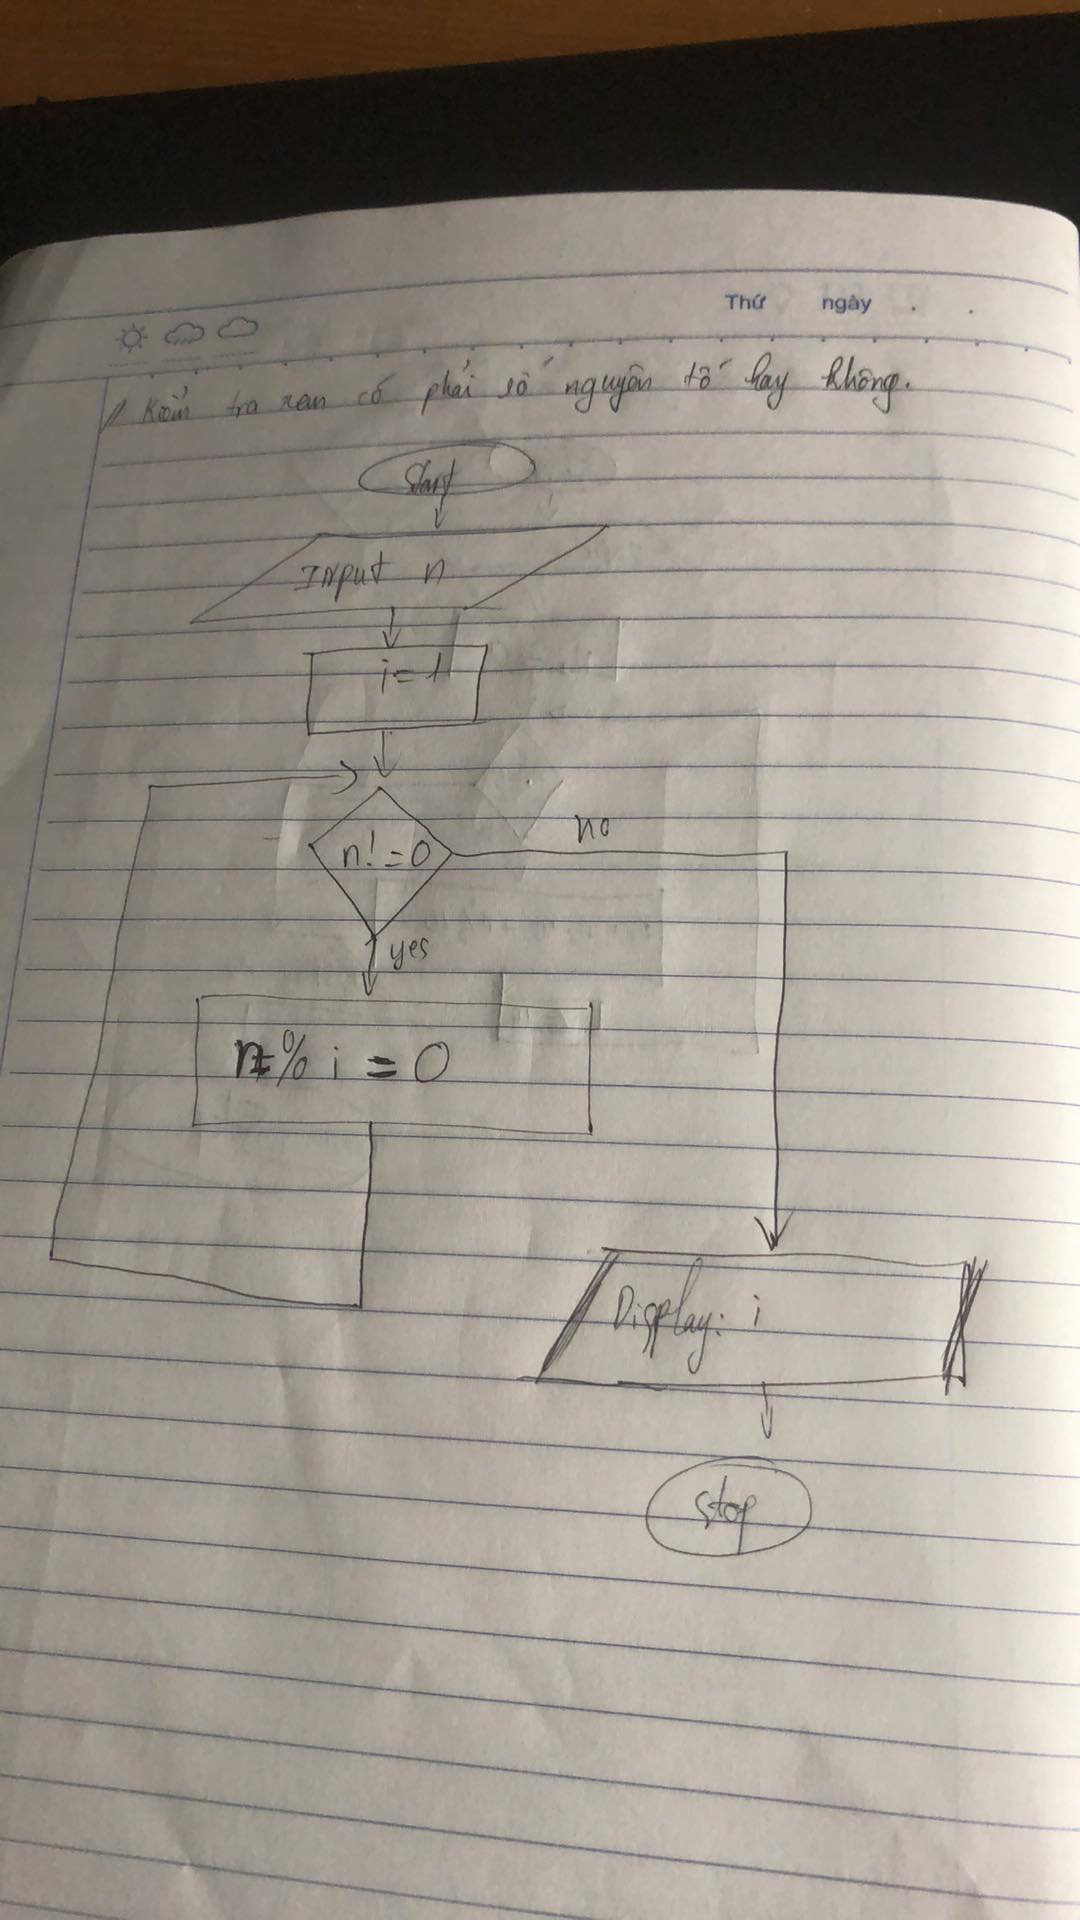 Thứ ngày . .
// Kiểm tra xem có phải số nguyên tố hay không.
Start
Input n
i=1
n!=0
no
yes
n% i = 0
Display: i
Stop